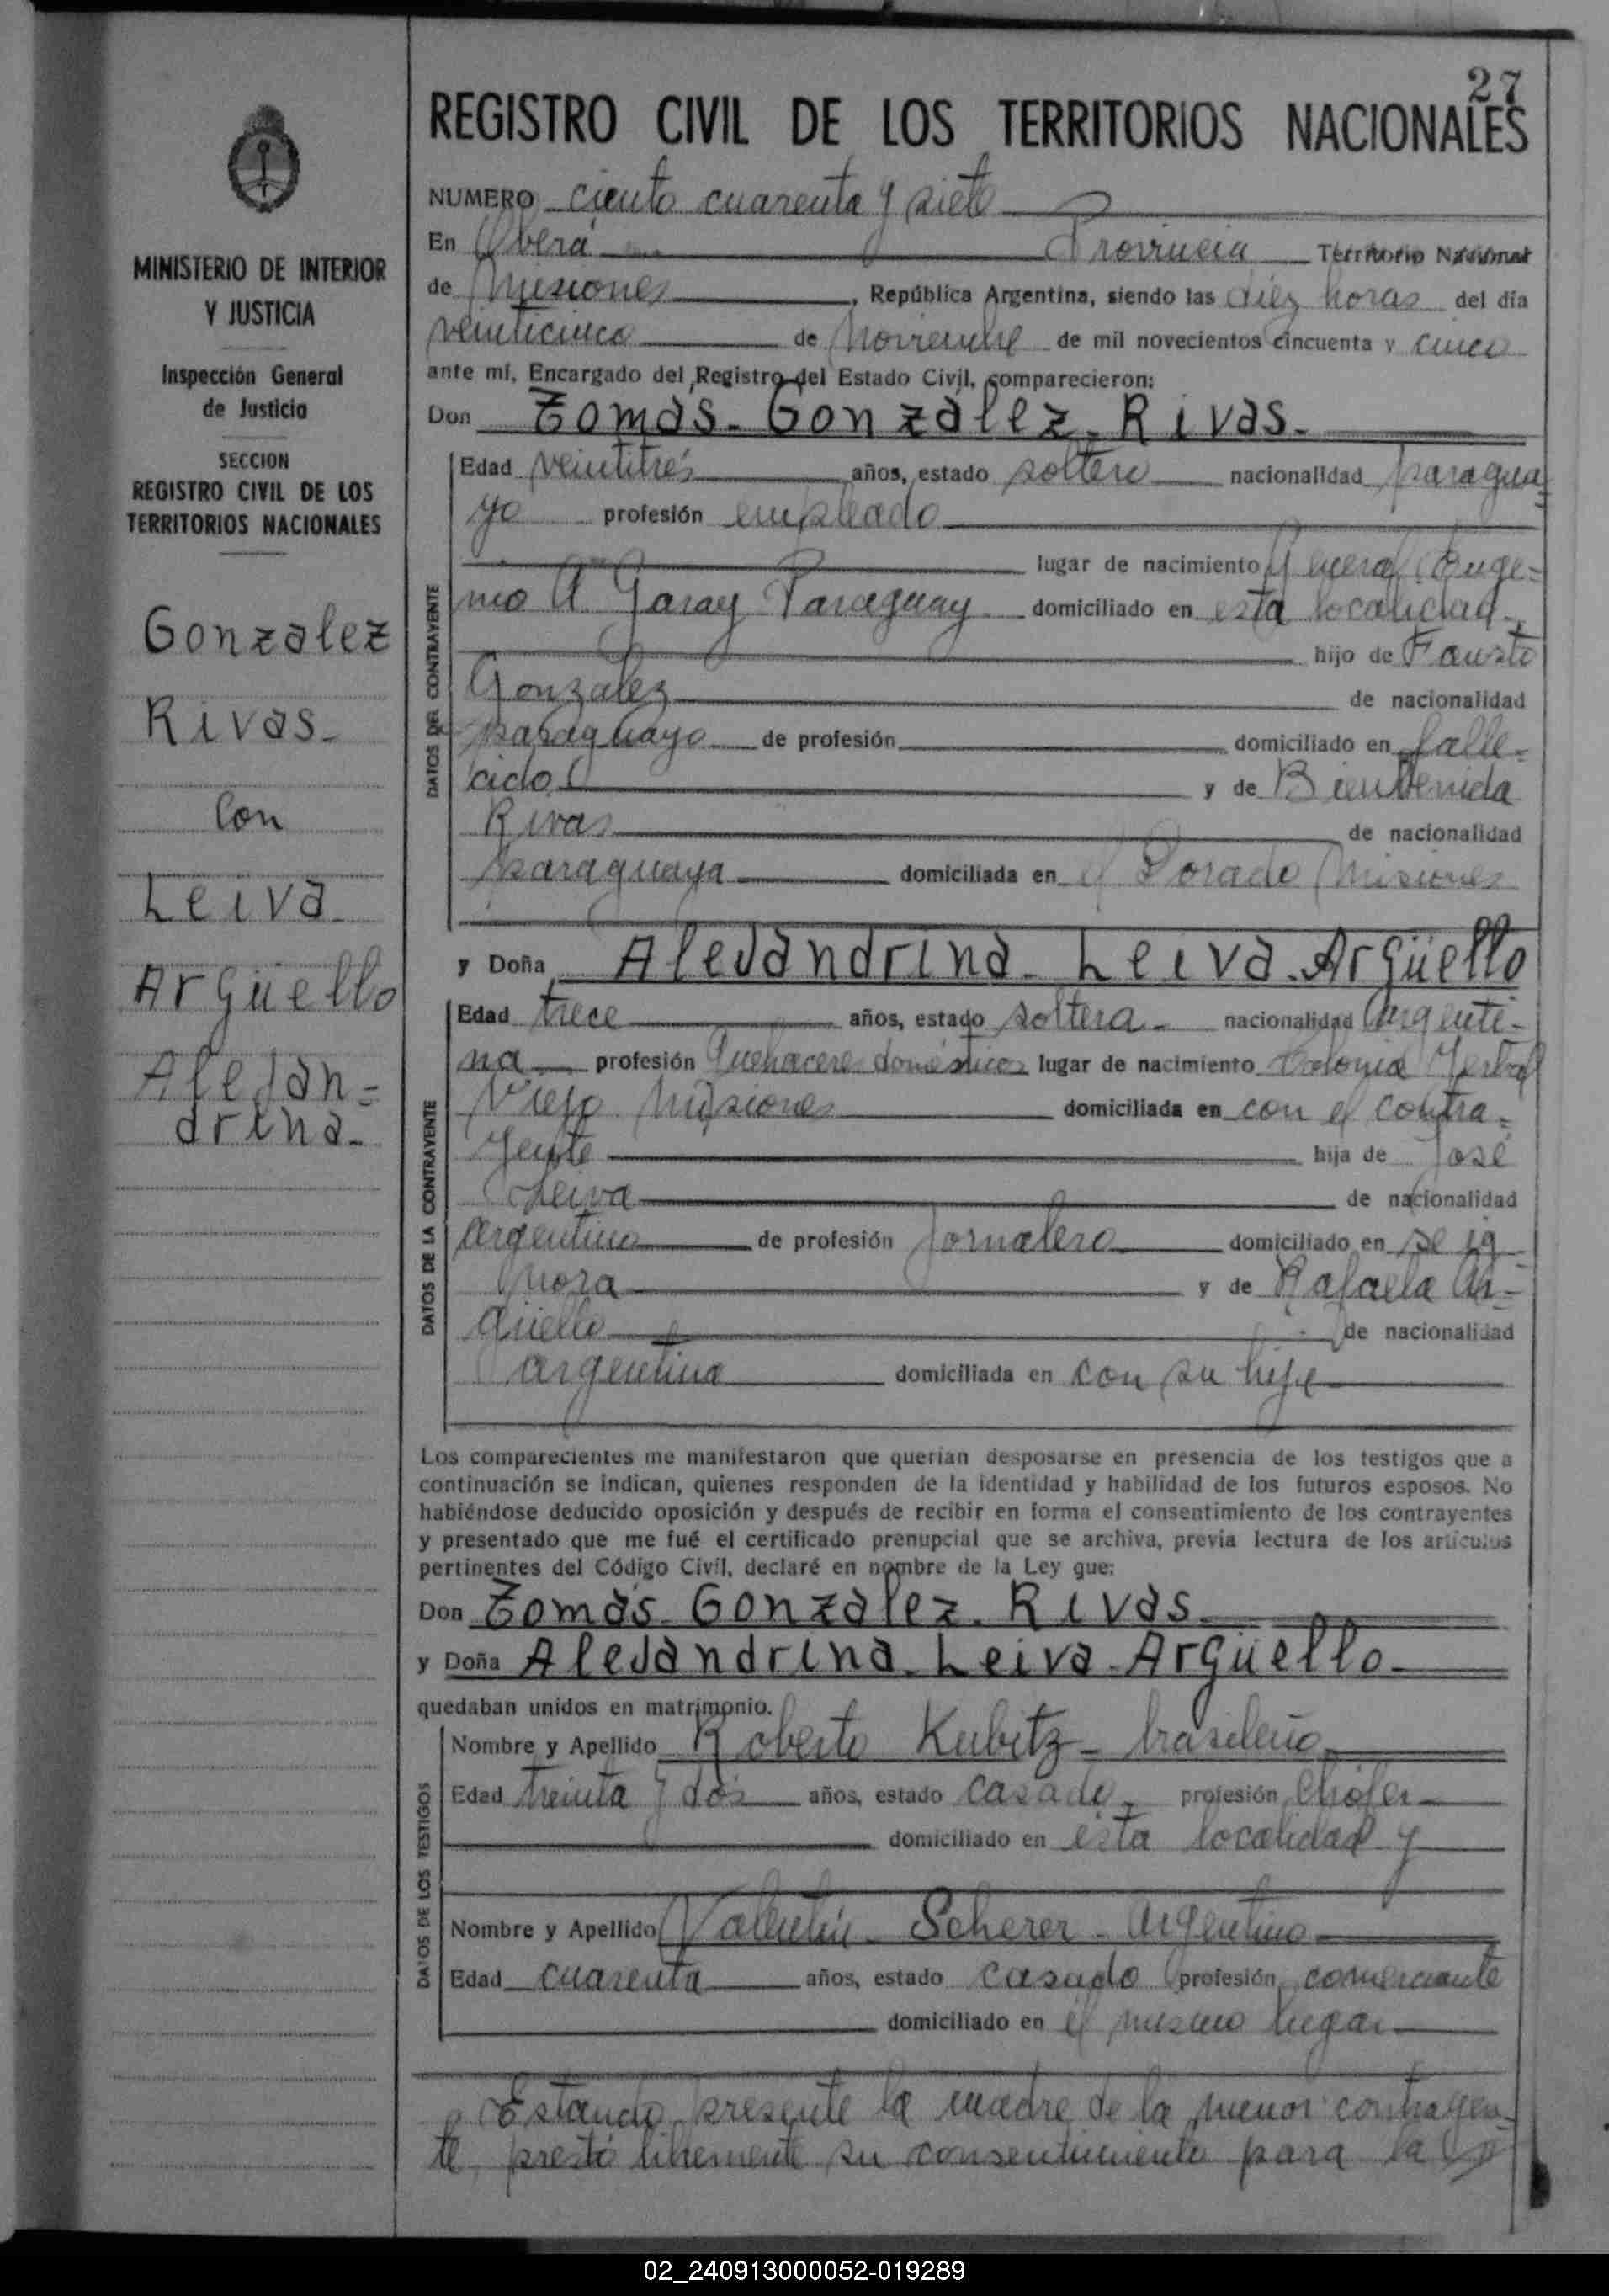 27
REGISTRO CIVIL DE LOS TERRITORIOS NACIONALES
MINISTERIO DE INTERIOR
Y JUSTICIA
Inspección General
de Justicia
SECCION
REGISTRO CIVIL DE LOS
TERRITORIOS NACIONALES
Gonzalez
Rivas-
Con
Leiva
Argüello
Alejan=
drina-
NUMERO ciento cuarenta y siete
En Oberá Provincia Territorio Nacional
de Misiones, República Argentina, siendo las diez horas del día
veinticinco de Noviembre de mil novecientos cincuenta y cinco
ante mí, Encargado del Registro del Estado Civil, comparecieron:
Don Tomás- González- Rivas-
DATOS DEL CONTRAYENTE
Edad veintitrés años, estado soltero nacionalidad paragua=
yo profesión empleado
lugar de nacimiento General Euge=
nio A Garay Paraguay domiciliado en esta localidad-
hijo de Fausto
Gonzalez de nacionalidad
paraguayo de profesión domiciliado en falle=
cido y de Bienvenida
Rivas de nacionalidad
paraguaya domiciliada en el Dorado Misiones
y Doña Alejandrina- Leiva- Argüello
DATOS DE LA CONTRAYENTE
Edad trece años, estado soltera- nacionalidad argenti-
na profesión Quehaceres domésticos lugar de nacimiento Colonia Yerbal
Viejo Misiones domiciliada en con el contra=
yente hija de José
Leiva de nacionalidad
argentino de profesión jornalero domiciliado en se ig
nora y de Rafaela Ar-
güello de nacionalidad
argentina domiciliada en con su hija
Los comparecientes me manifestaron que querían desposarse en presencia de los testigos que a
continuación se indican, quienes responden de la identidad y habilidad de los futuros esposos. No
habiéndose deducido oposición y después de recibir en forma el consentimiento de los contrayentes
y presentado que me fué el certificado prenupcial que se archiva, previa lectura de los artículos
pertinentes del Código Civil, declaré en nombre de la Ley que:
Don Tomás- González- Rivas
y Doña Alejandrina- Leiva- Argüello-
quedaban unidos en matrimonio.
DATOS DE LOS TESTIGOS
Nombre y Apellido Roberto Kubitz- brasileño
Edad treinta y dos años, estado casado- profesión Chofer
domiciliado en esta localidad y
Nombre y Apellido Valentín- Scherer- argentino
Edad cuarenta años, estado casado profesión comerciante
domiciliado en el mismo lugar
Estando presente la madre de la menor contrayen-
te, prestó libremente su consentimiento para la
02_240913000052-019289